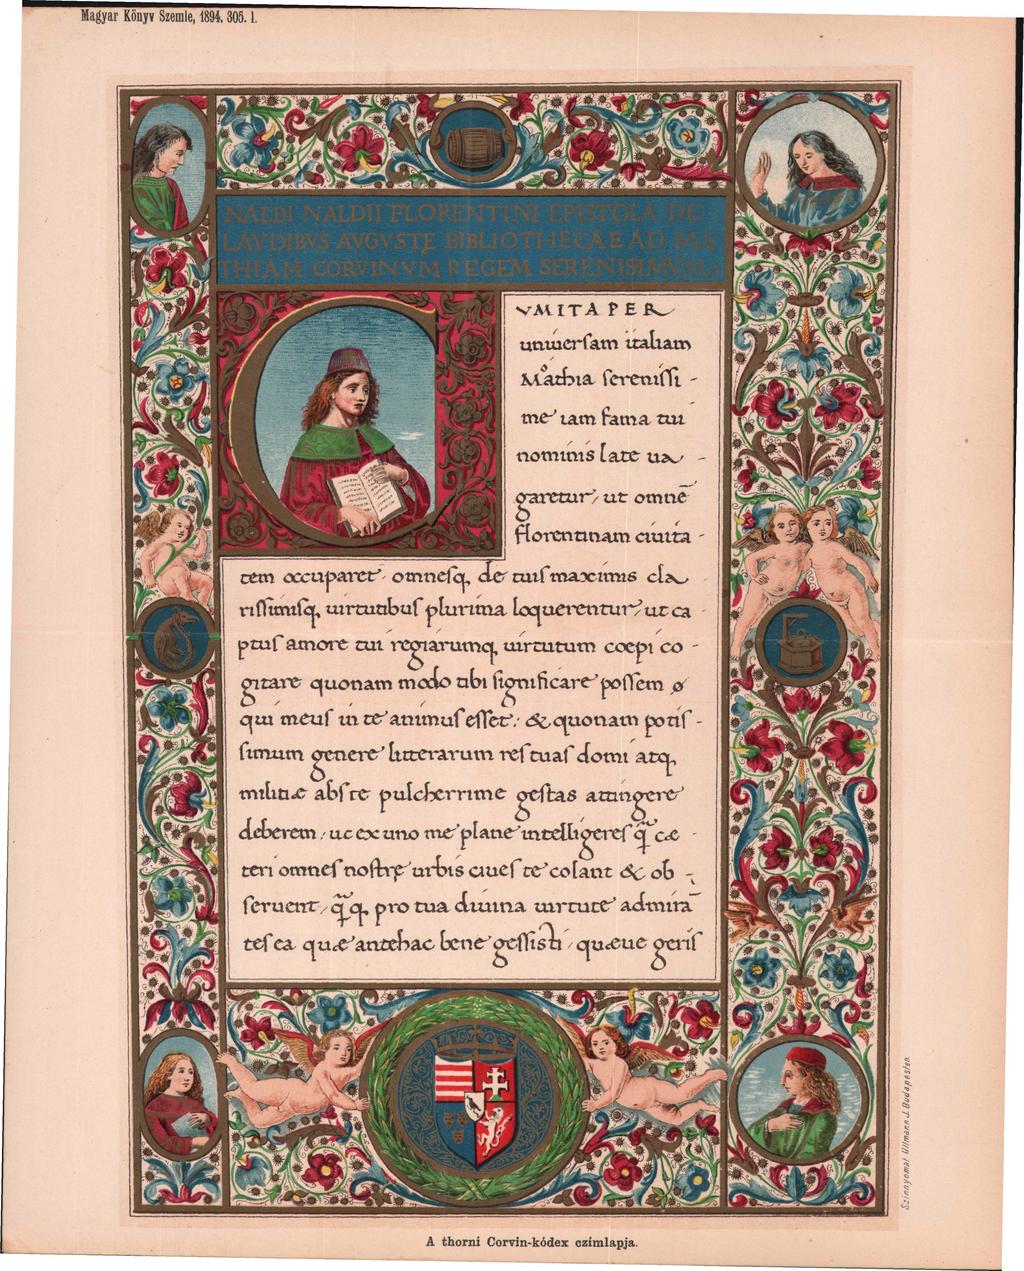 Magyar Könyv Szemle, 1894. 305. l.
NALDI NALDII FLORENTINI EPISTOLA DE
LAVDIBVS AVGVSTĘ BIBLIOTHECAE AD MA
THIAM CORVINVM REGEM SERENISSIMVM
VMITA PER
uniuersam italiam
Mathia serenissi-
me iam fama tui
nominis late ua-
garetur, ut omnē
florentinam ciuita-
tem occuparet: omnesq, de tuis maximis cla
rissimisq, uirtutibus plurima loquerentur, ut ca-
ptus amore tui regiarumq, uirtutum coepi co-
gitare quonam modo tibi significare possem ø
qui meus in te animus esset: & quonam potis-
simum genere litterarum res tuas domi atq,
militiæ abs te pulcherrime gestas attingere
deberem, ut ex uno me plane intelligeres q̃ cæ-
teri omnes nostrę urbis ciues te colant & ob-
seruent, q̃q, pro tua diuina uirtute admirā
tes ea quæ antehac bene gessisti, quæue geris
A thorni Corvin-kódex czímlapja.
Színnyomat Ullmann J. Budapesten.